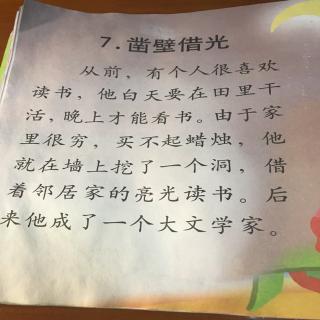 7.凿壁借光
从前，有个人很喜欢
读书，他白天要在田里干
活，晚上才能看书。由于家
里很穷，买不起蜡烛，他
就在墙上挖了一个洞，借
着邻居家的亮光读书。后
来他成了一个大文学家。